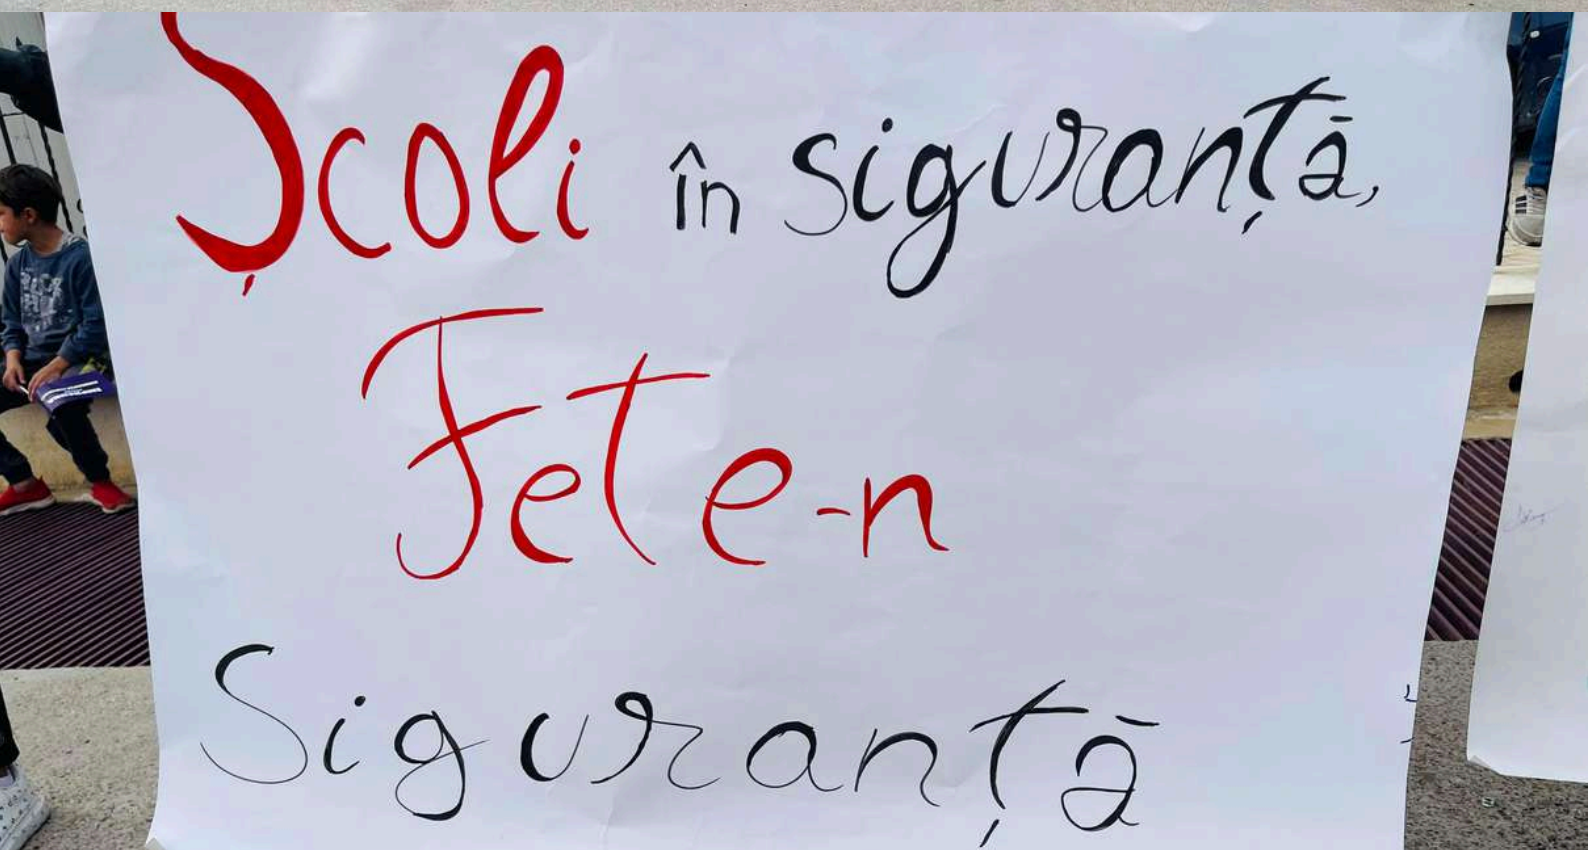 Școli în siguranță,
Fete-n
Siguranță